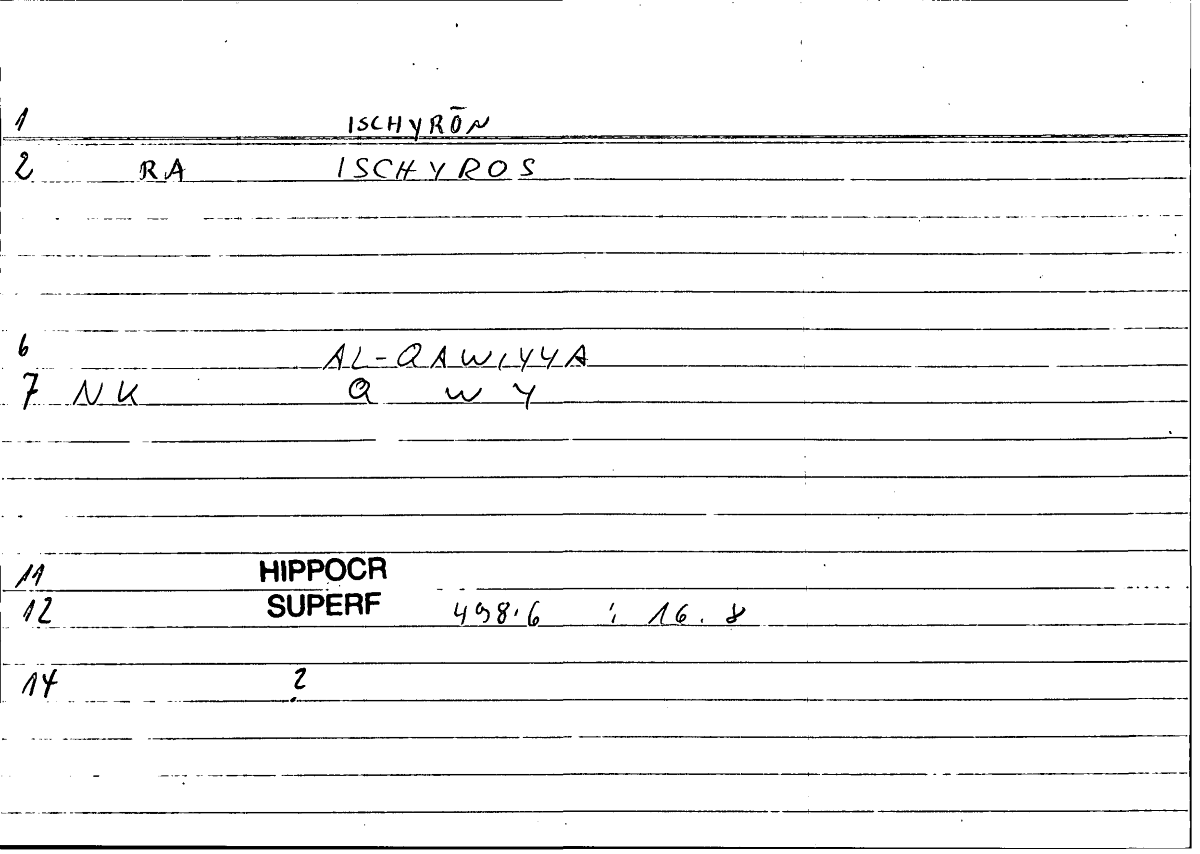 1 ISCHYRŌN
2 RA ISCHYROS
6 AL-QAWIYYA
7 NK Q W Y
11 HIPPOCR
12 SUPERF 498.6 ; 16.8
14 2